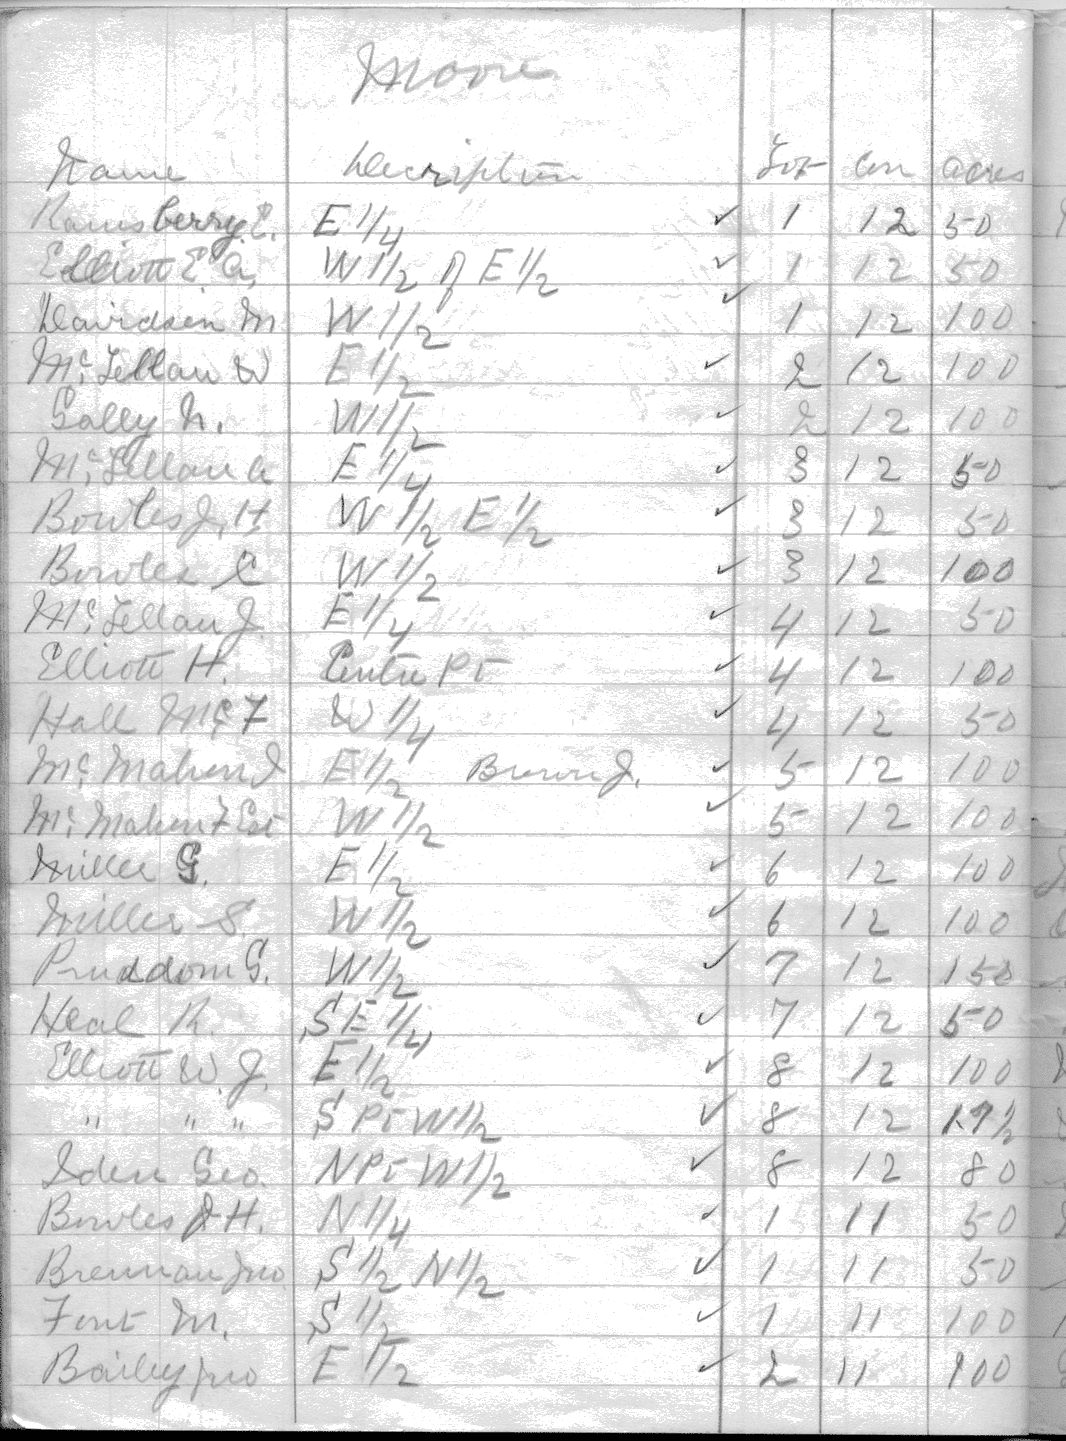 Moore
Name Description Lot Con acres
Ramsberry E. E 1/4 ✓ 1 12 50
Elliott E. A. W 1/2 of E 1/2 ✓ 1 12 50
Davidson M W 1/2 ✓ 1 12 100
Mc Lellan W E 1/2 ✓ 2 12 100
Gally N. W 1/2 ✓ 2 12 100
Mc Lellan A E 1/4 ✓ 3 12 50
Bowles J. H W 1/2 E 1/2 ✓ 3 12 50
Bowles E W 1/2 ✓ 3 12 100
Mc Lellan J. E 1/4 ✓ 4 12 50
Elliott H. Centre Pt ✓ 4 12 100
Hall W 1/4 ✓ 4 12 50
Mc Mahen J E 1/2 Brown J. ✓ 5 12 100
Mc Mahen F Est W 1/2 ✓ 5 12 100
Miller G. E 1/2 ✓ 6 12 100
Miller S. W 1/2 ✓ 6 12 100
Pruddom G. W 1/2 ✓ 7 12 150
Heal R. S E 1/4 ✓ 7 12 50
Elliott W. J. E 1/2 ✓ 8 12 100
" " " S Pt W 1/2 ✓ 8 12 17 1/2
Iden Geo. N Pt W 1/2 ✓ 8 12 80
Bowles J H. N 1/4 ✓ 1 11 50
Brennan Jno S 1/2 N 1/2 ✓ 1 11 50
Font M. S 1/2 ✓ 1 11 100
Bailey Jno E 1/2 ✓ 2 11 100